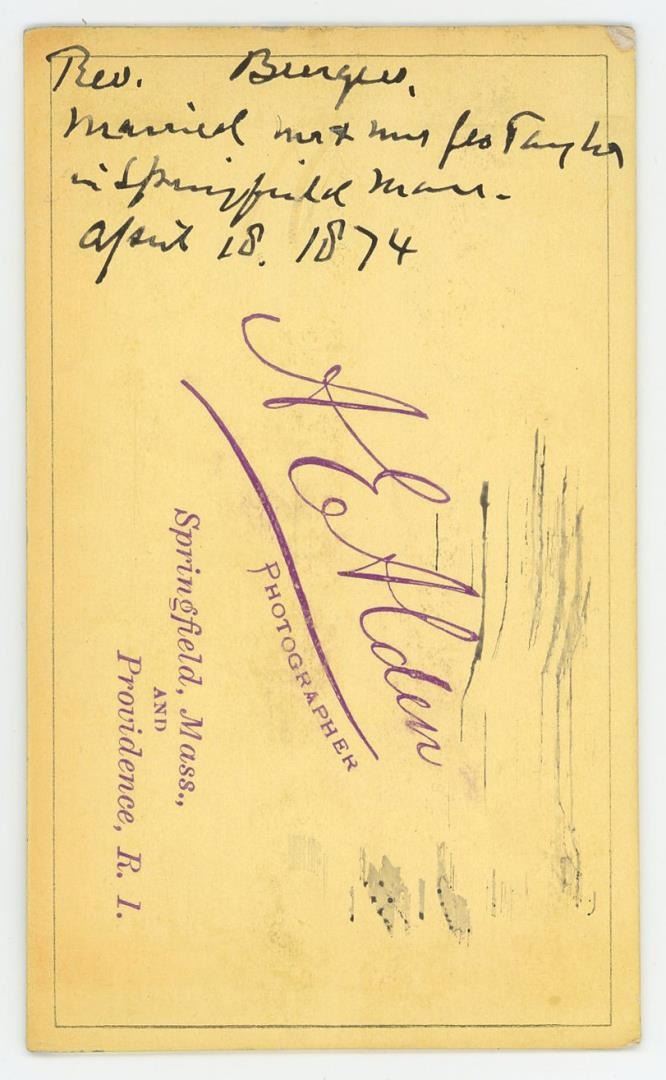 Rev. Burgess,
Married mr & mrs Geo Taylor
in Springfield Mass.
April 18. 1874
A E Alden
PHOTOGRAPHER
Springfield, Mass.,
AND
Providence, R. I.